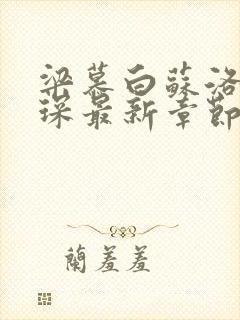 梁慕白蘇洛
琛最新章節
蘭羞羞